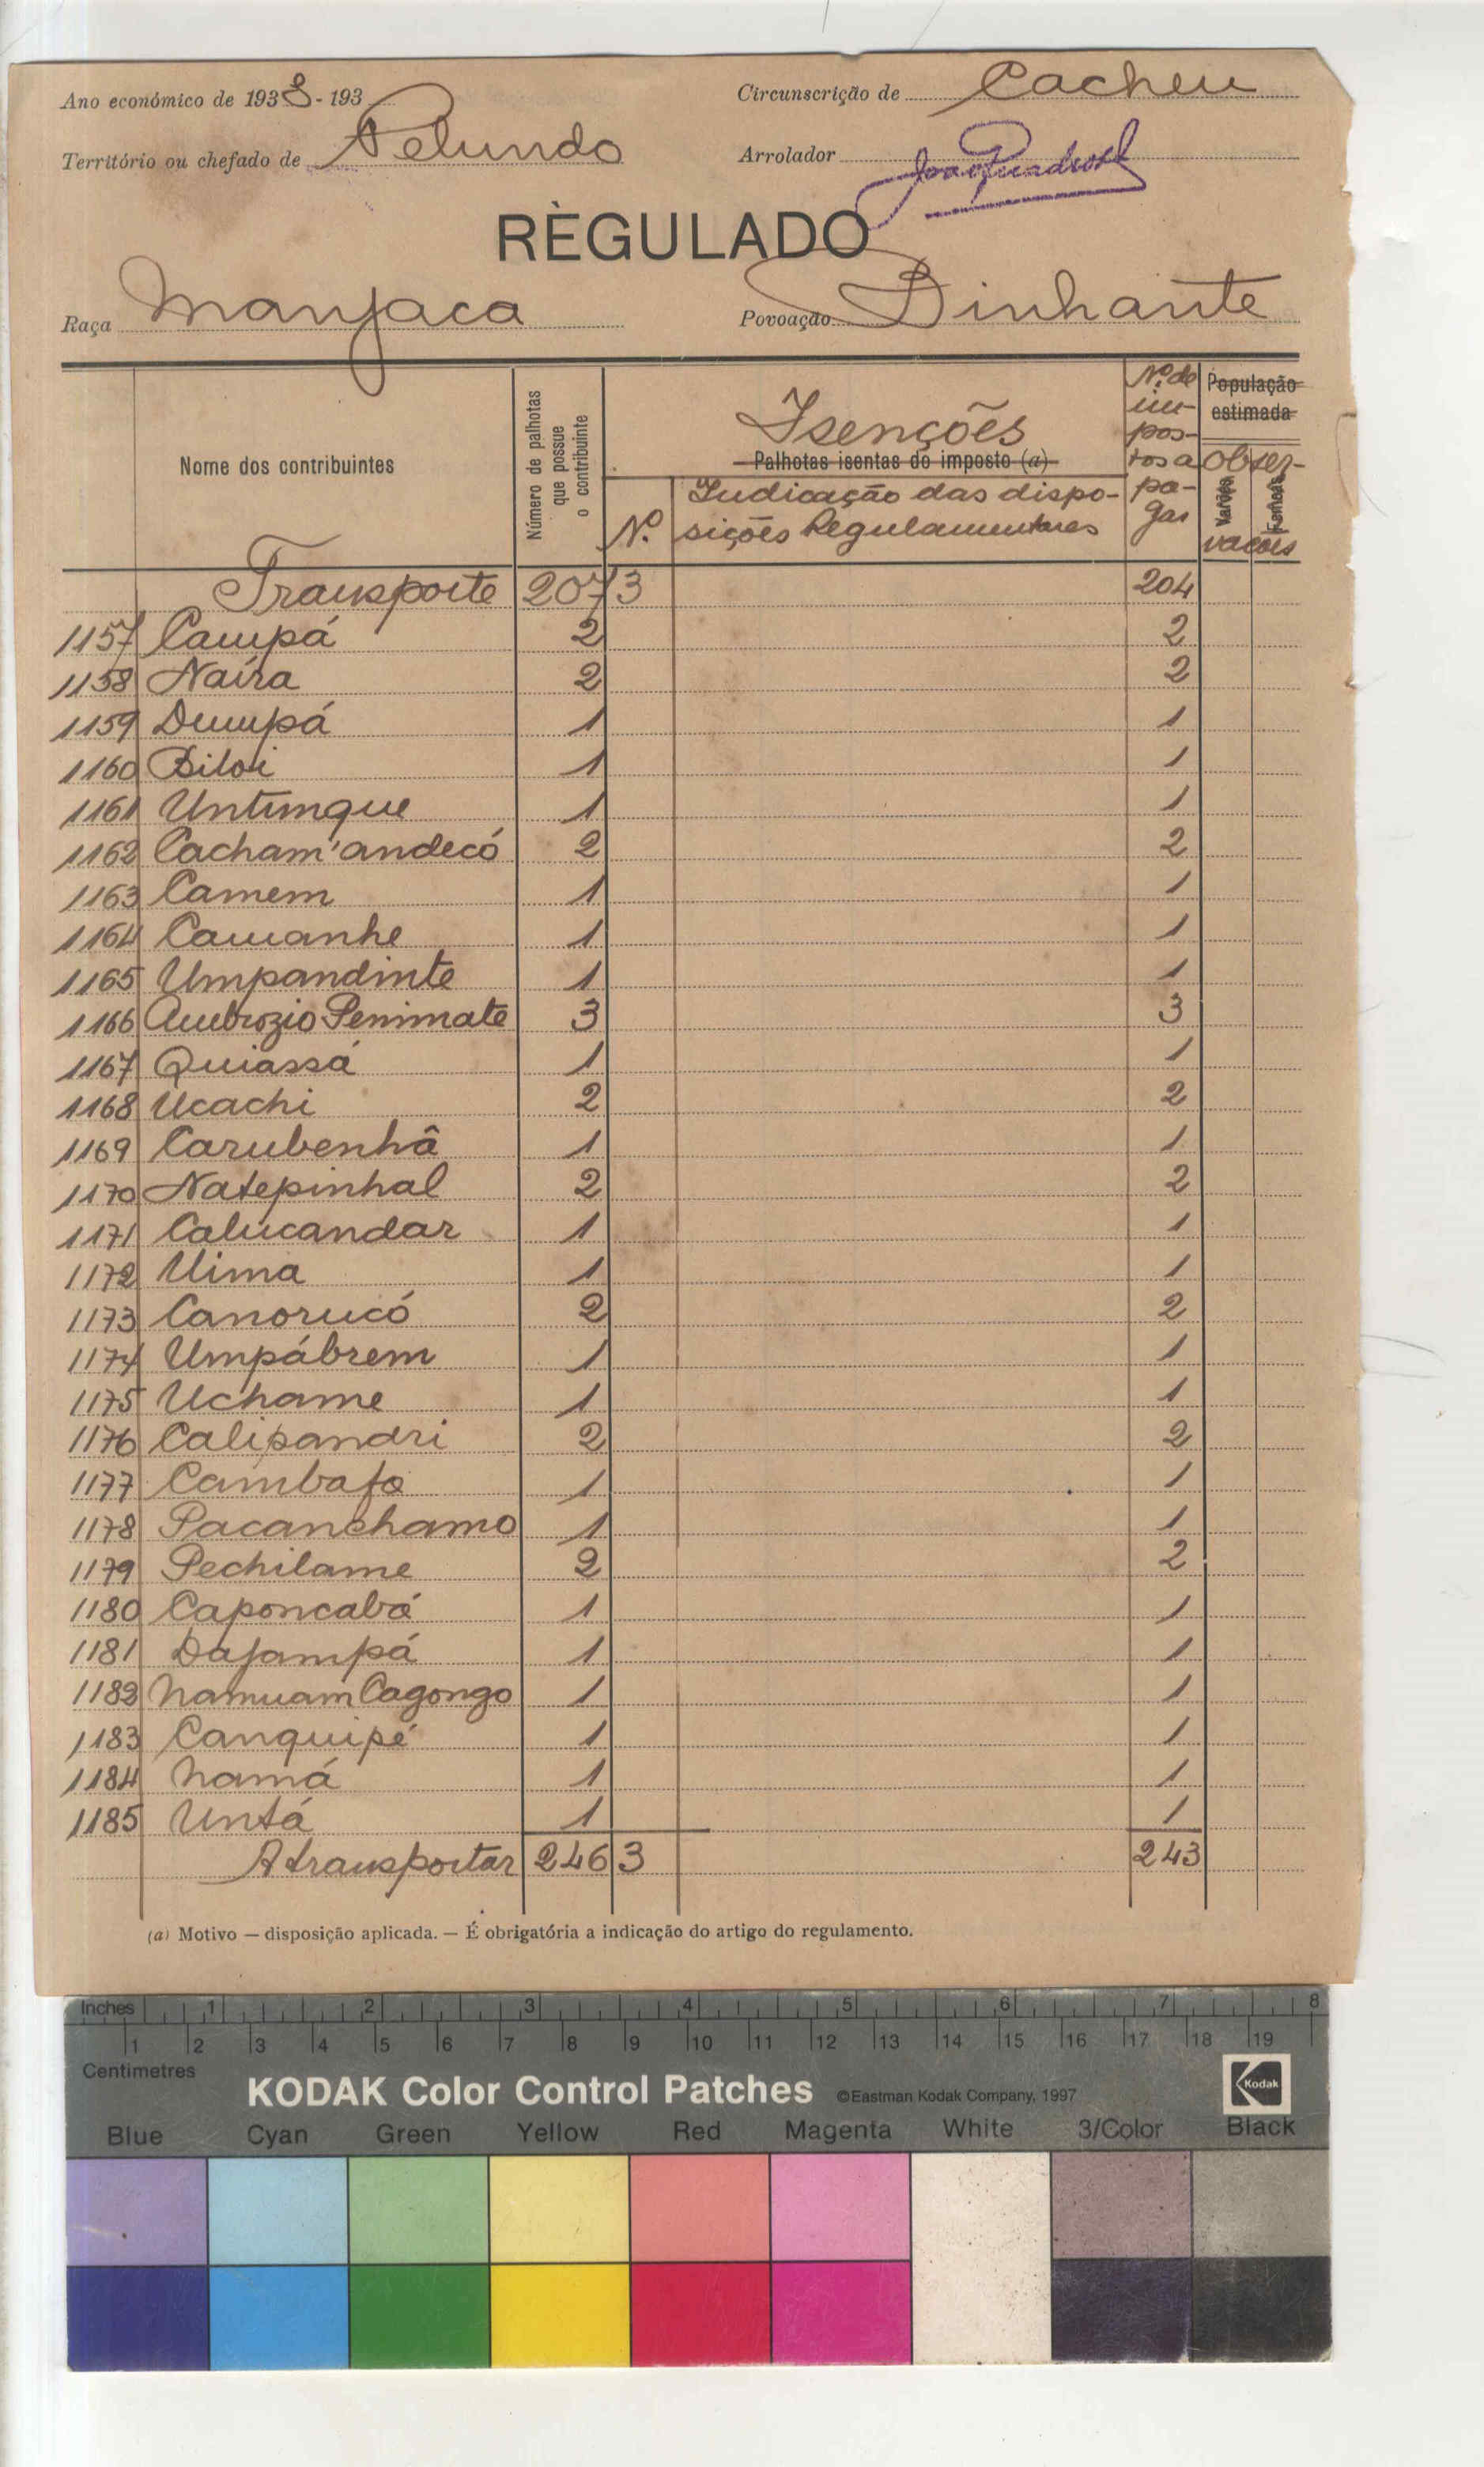 Ano económico de 1938-193
Circunscrição de Cacheu
Território ou chefado de Pelundo
Arrolador
RÈGULADO
Raça Manjaca
Povoação Binhante
Nome dos contribuintes
Número de palhotas que possue o contribuinte
Isenções
Palhotas isentas do imposto (a)
Nº
Indicação das disposições Regulamentares
Nº. de impostos a pagar
População estimada
Observações
Varões
Femeas
Transporte 207 3 204
1157 Campá 2 2
1158 Naíra 2 2
1159 Dumpá 1 1
1160 Biloi 1 1
1161 Untimque 1 1
1162 Cacham'andecó 2 2
1163 Camem 1 1
1164 Camanhe 1 1
1165 Umpandinte 1 1
1166 Ambrozio Penimate 3 3
1167 Quiassá 1 1
1168 Ucachi 2 2
1169 Carubenhã 1 1
1170 Natepinhal 2 2
1171 Calucandar 1 1
1172 Uima 1 1
1173 Canorucó 2 2
1174 Umpábrem 1 1
1175 Uchame 1 1
1176 Calipandri 2 2
1177 Cambafa 1 1
1178 Pacanchamo 1 1
1179 Pechilame 2 2
1180 Caponcabá 1 1
1181 Dafampá 1 1
1182 Namuam Cagongo 1 1
1183 Canquipé 1 1
1184 Namá 1 1
1185 Untá 1 1
A transportar 246 3 243
(a) Motivo — disposição aplicada. — É obrigatória a indicação do artigo do regulamento.
Inches 1 2 3 4 5 6 7 8
1 2 3 4 5 6 7 8 9 10 11 12 13 14 15 16 17 18 19
Centimetres
KODAK Color Control Patches ©Eastman Kodak Company, 1997 Kodak
Blue Cyan Green Yellow Red Magenta White 3/Color Black